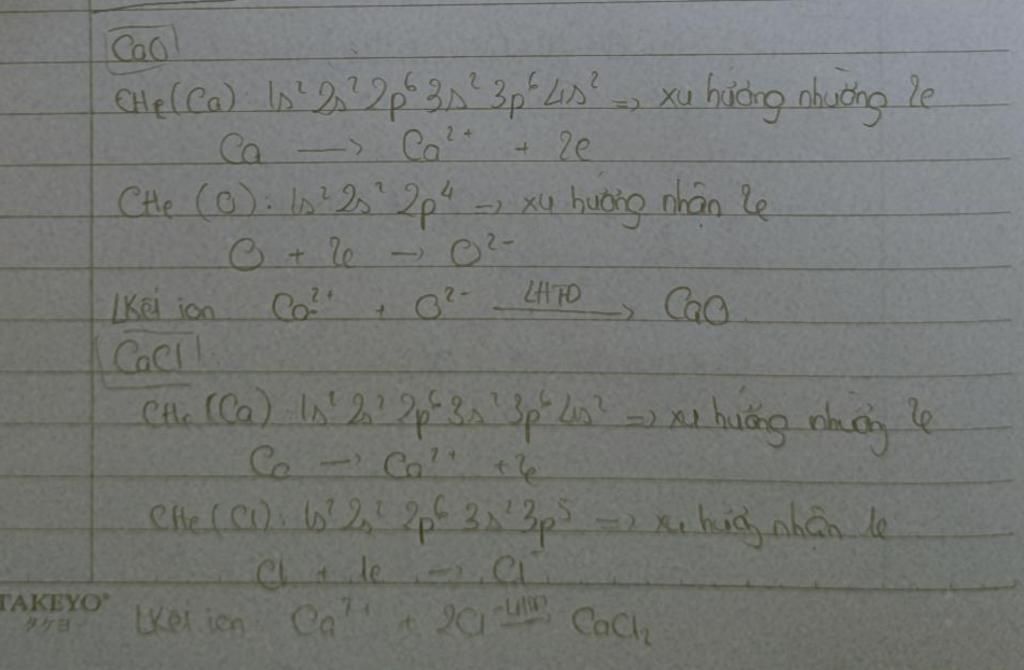 CaO
CHe (Ca) 1s² 2s² 2p⁶ 3s² 3p⁶ 4s² => xu hướng nhường 2e
Ca —> Ca²⁺ + 2e
CHe (O): 1s² 2s² 2p⁴ => xu hướng nhận 2e
O + 2e —> O²⁻
LKết ion Ca²⁺ + O²⁻ —LHTĐ—> CaO
CaCl
CHe (Ca) 1s² 2s² 2p⁶ 3s² 3p⁶ 4s² => xu hướng nhường 2e
Ca —> Ca²⁺ + 2e
CHe (Cl): 1s² 2s² 2p⁶ 3s² 3p⁵ => xu hướng nhận 1e
Cl + 1e —> Cl⁻
TAKEYO®
タケヨ
LKết ion Ca²⁺ + 2Cl⁻ —LHTĐ—> CaCl₂